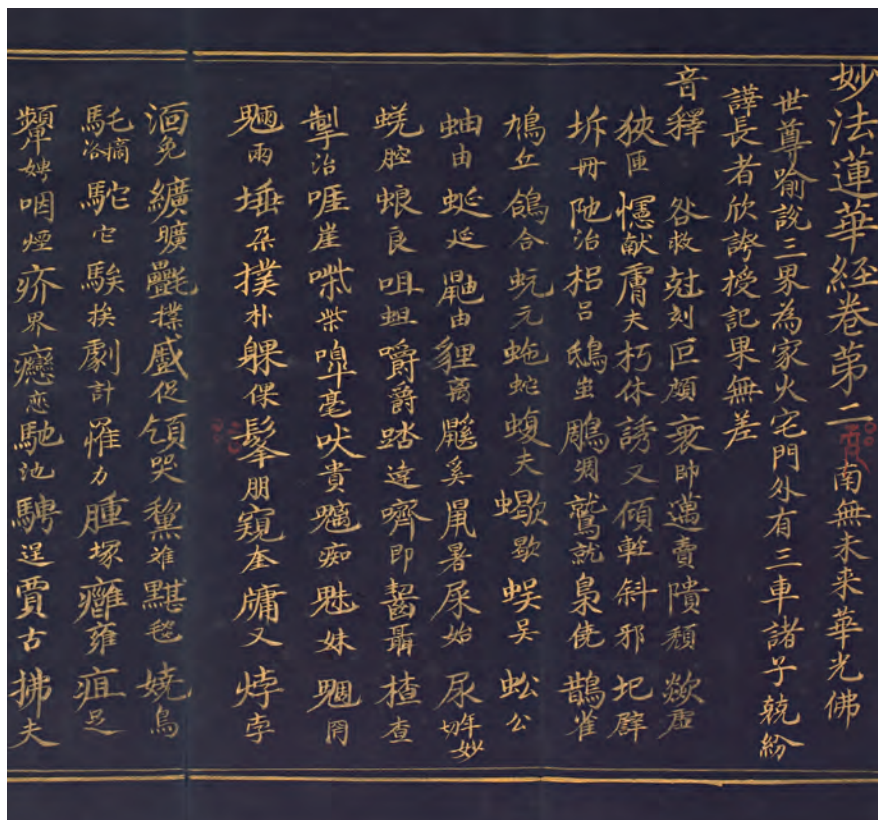 妙法蓮華經卷第二 南無未来華光佛
世尊喻說三界為家火宅門外有三車諸子兢紛
譁長者欣誇授記果無差
音釋 咎救 尅刻 叵頗 衰帥 邁賣 隤頹 歘虛
狹匣 献 膚夫 朽休 誘又 傾軽 斜邪 圮劈
坼冊 阤治 梠吕 鴟蚩 鵰凋 鷲就 梟僥 鵲雀
鳩 鴿合 蚖元 虵蛇 蝮夫 蠍歇 蜈吴 蚣公
蚰由 蜒延 鼬由 貍离 鼷奚 鼠暑 屎始 尿年妙切
蜣腔 蜋良 咀蛆 嚼爵 踏達 嚌即 齧聶 楂查
掣治 啀崖 喍柴 嘷毫 吠貴 魑痴 魅妹 魍罔
魎兩 埵朶 撲朴 躶倮 朋 窺奎 牖又 㶿孛
湎免 纊曠 氎揲 蹙促 哭 黧 黮毯 嬈鳥
馲 駝它 騃挨 劇計 罹力 腫塚 癰雍 疽足
顰 咽煙 疥界 戀 馳池 騁逞 賈古 拂夫